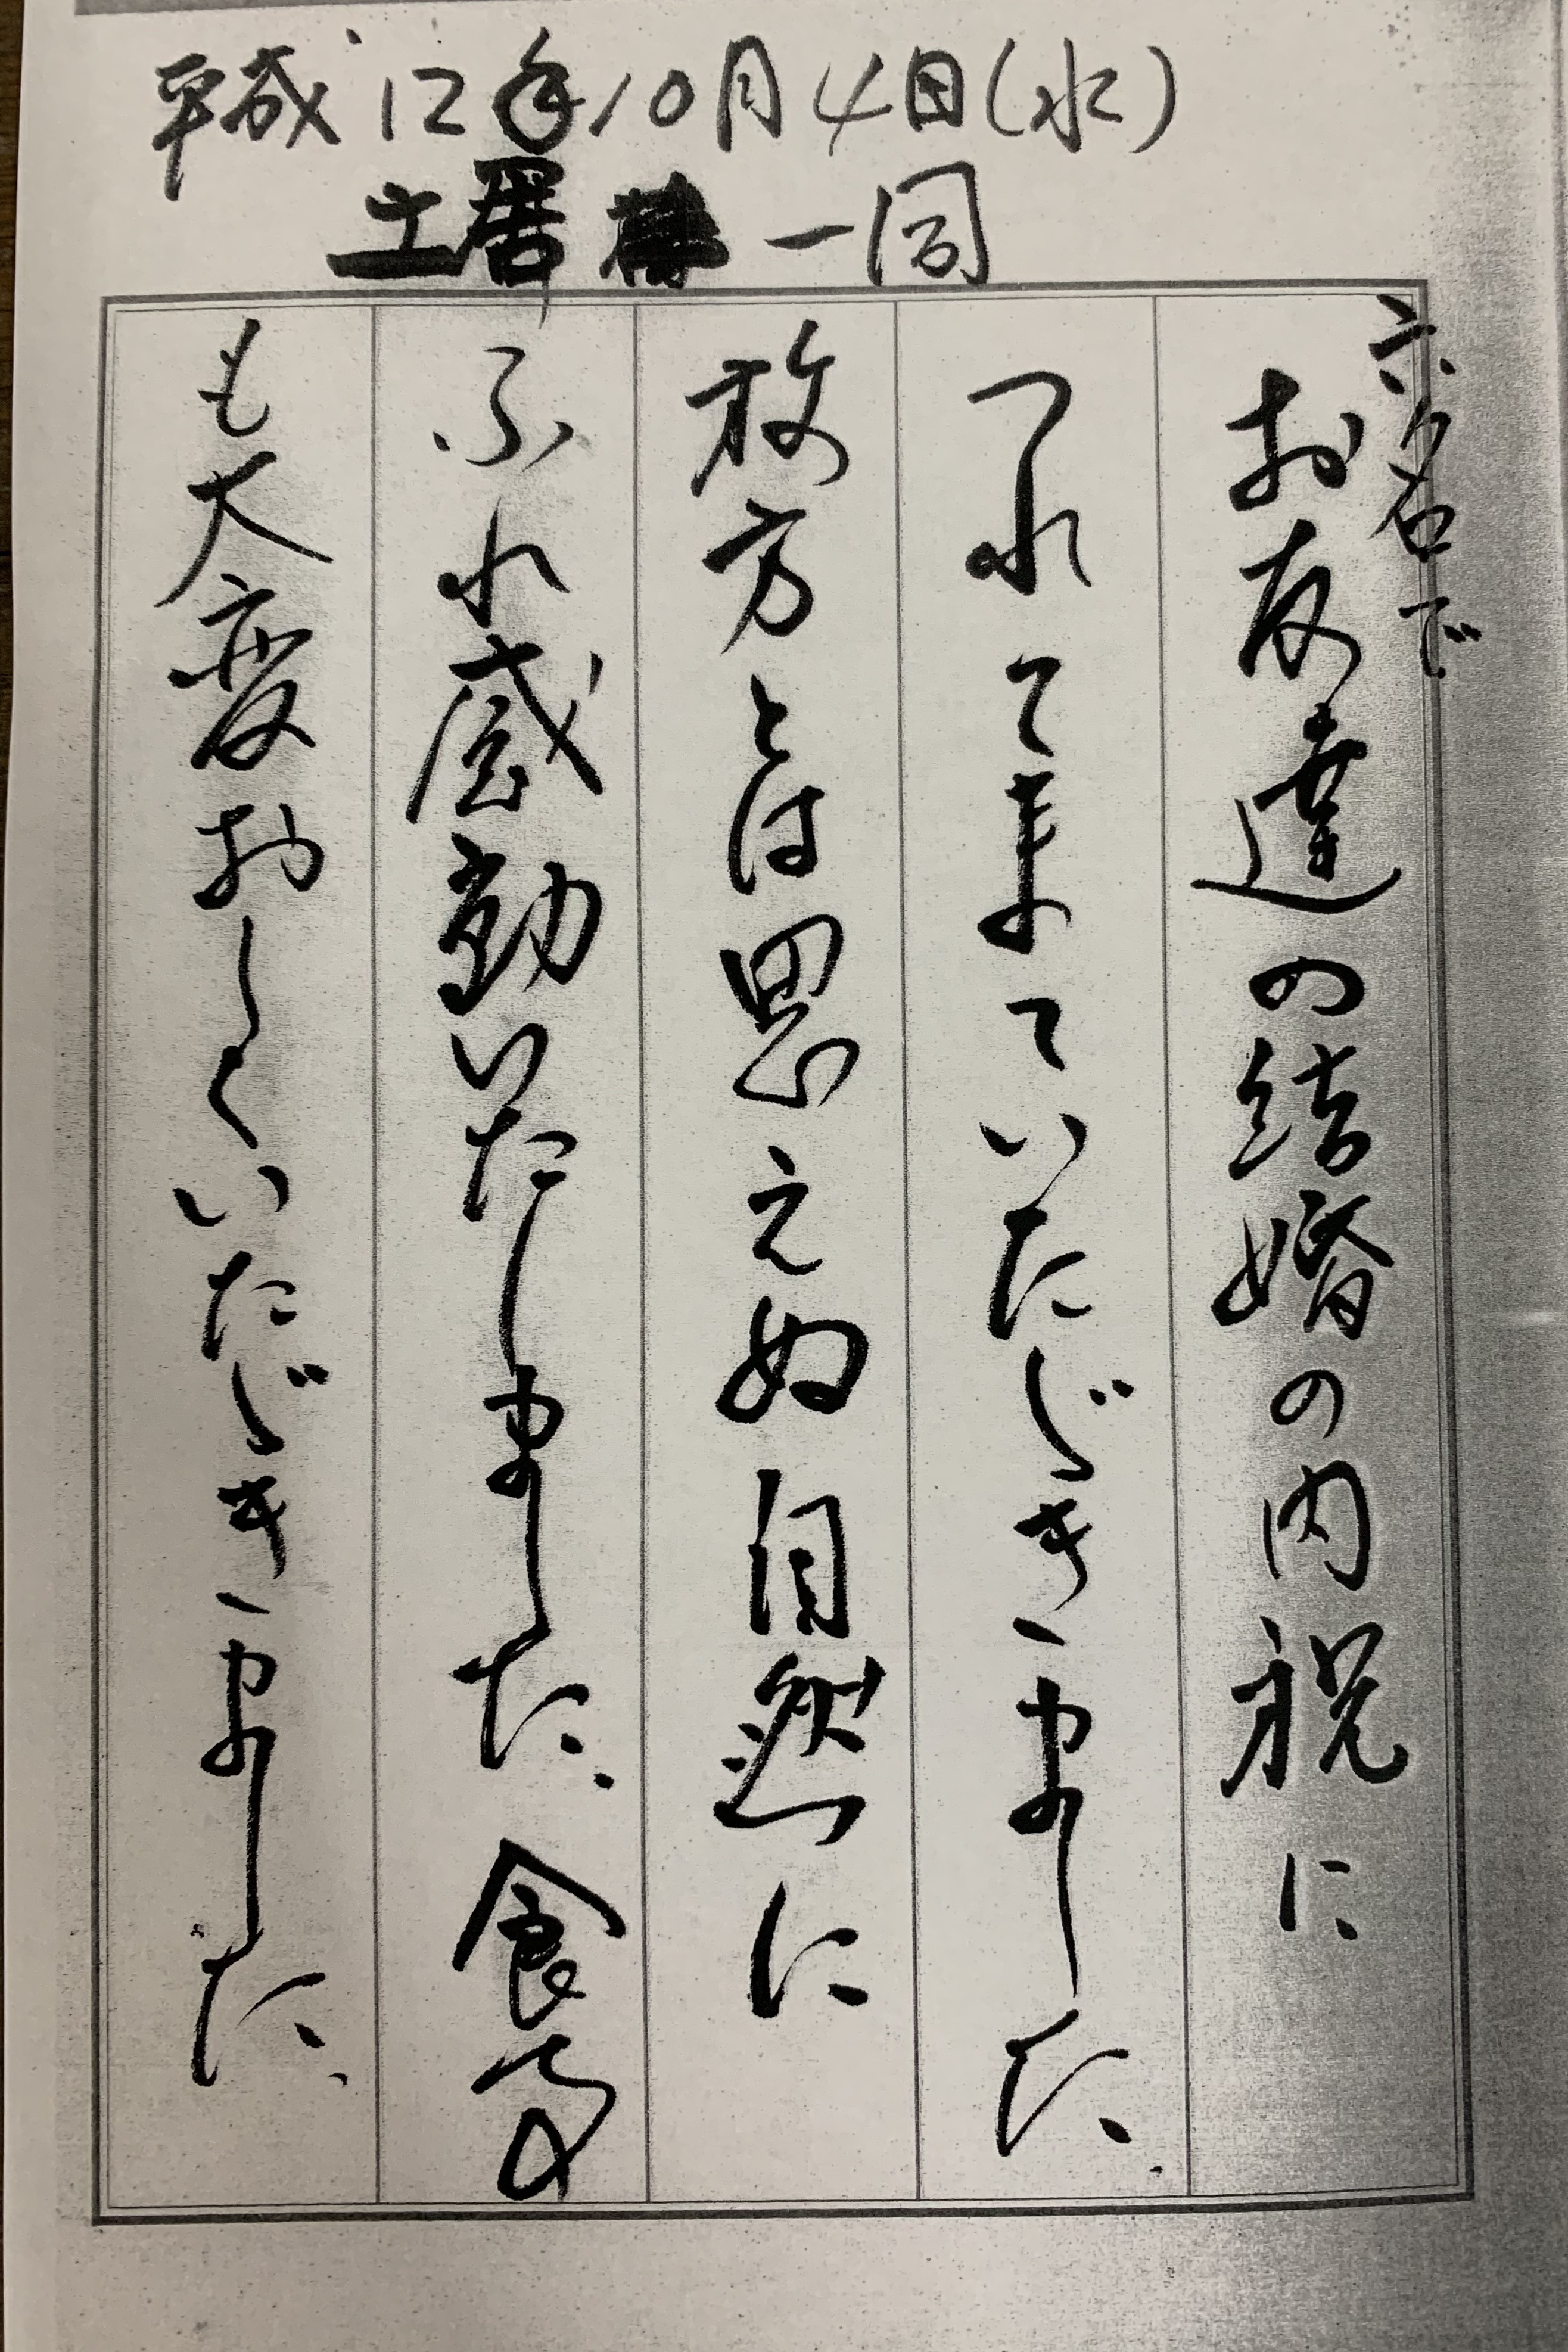 平成12年10月4日(水)
土居 一同
六名で
お友達の結婚の内祝に
つれてきていただきました
枚方とは思えぬ自然に
ふれ感動いたしました、食事
も大変おしくいただきました、